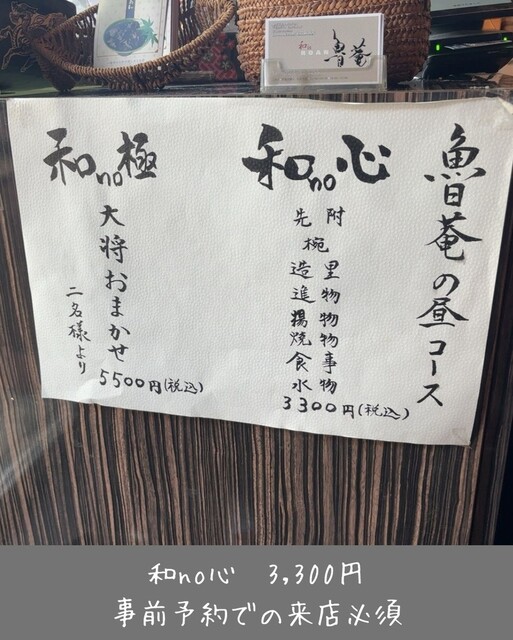 魯菴
魯菴の昼コース
和no心
先附
椀
造里
進物
揚物
焼物
食事
水物
3300円(税込)
和no極
大将おまかせ
二名様より
5500円(税込)
和no心 3,300円
事前予約での来店必須